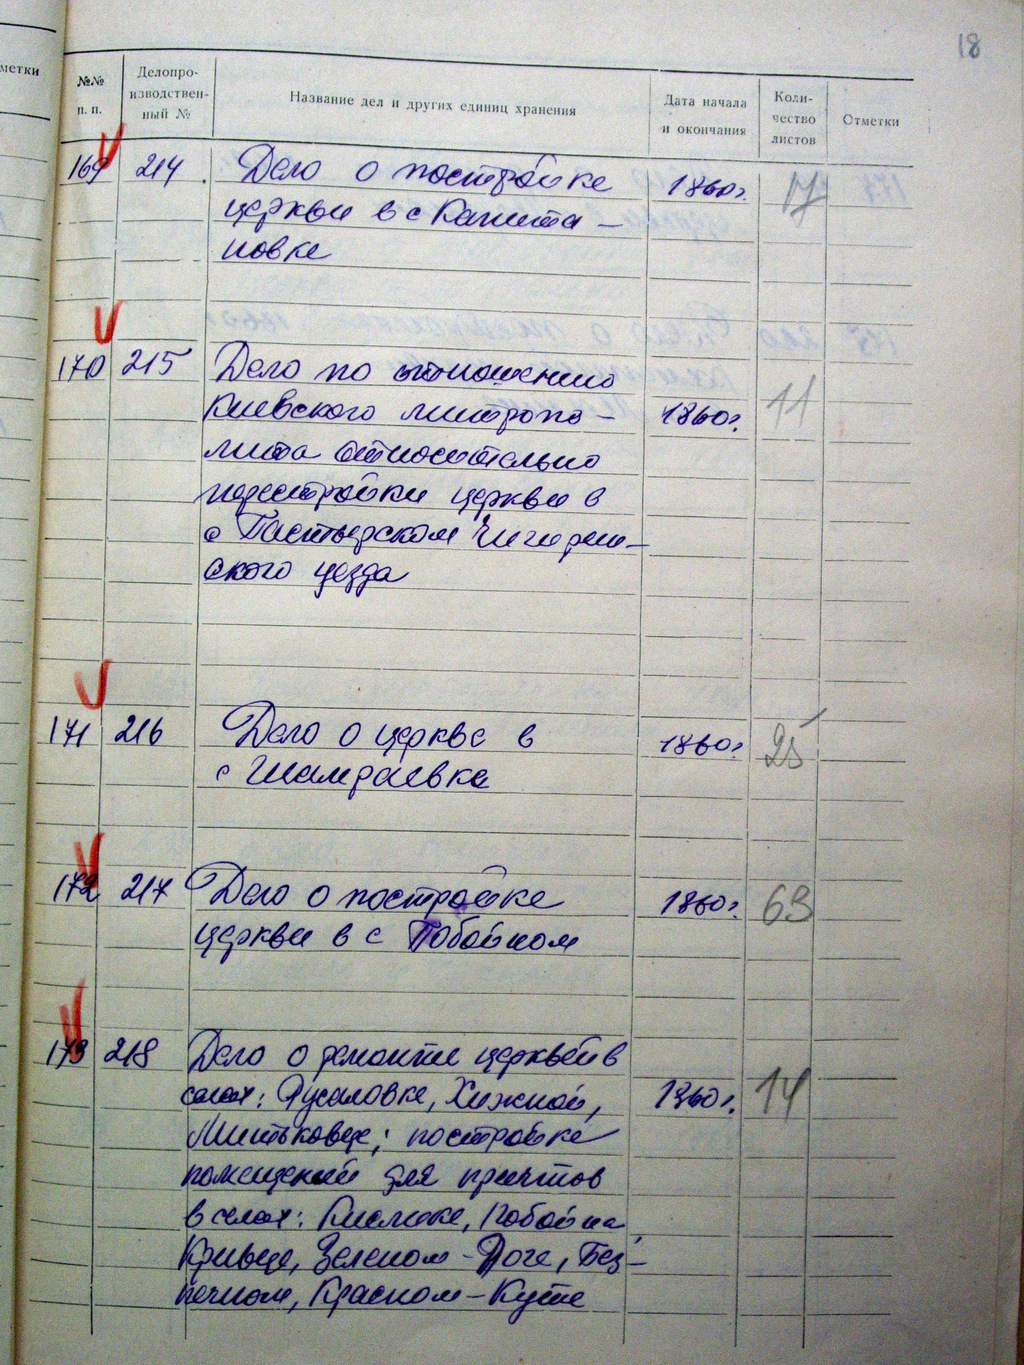 18
метки
№№ п. п.
Делопро-
изводствен-
ный №
Название дел и других единиц хранения
Дата начала
и окончания
Коли-
чество
листов
Отметки
169 214 Дело о постройке 1860г. 17
церкви в с Капита-
новке
170 215 Дело по отношению
Киевского митропо- 1860г. 11
лита относительно
перестройки церкви в
с Пастырском Чигирин-
ского уезда
171 216 Дело о церкве в 1860г. 25
с Шамраевка
172 217 Дело о постройке 1860г. 63
церкви в с Побойном
173 218 Дело о ремонте церквей в
селах: Русаловке, Хижной, 1860г. 14
Митьковце; постройке
помещений для причтов
в селах: Кислике, Побойна,
Кривце, Зеленом-Роге, Без-
печном, Красном-Куте